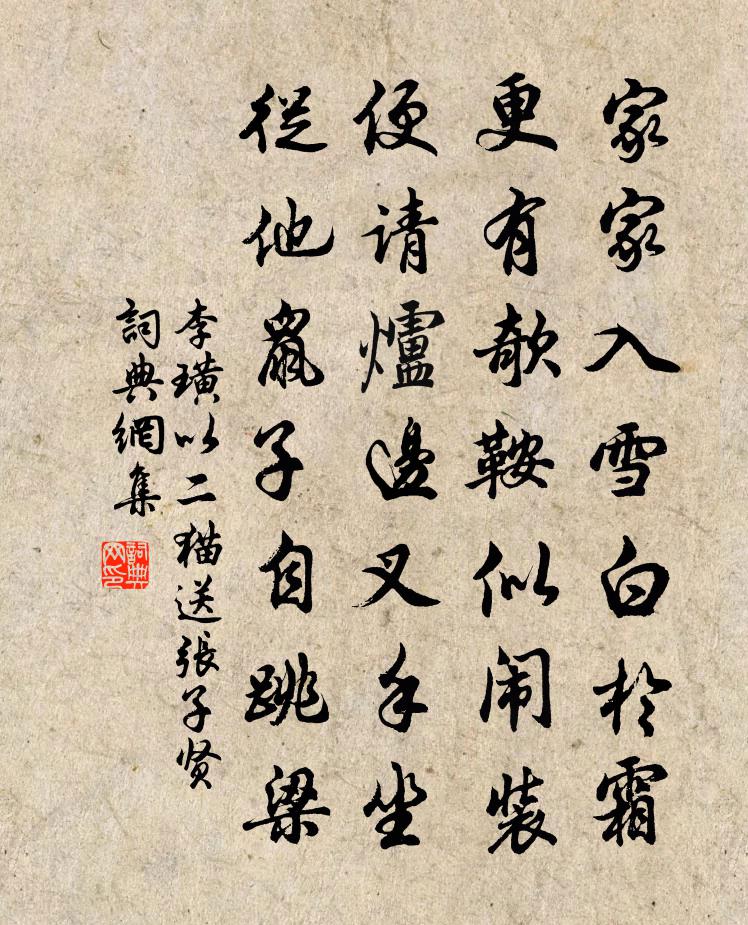 家家入雪白於霜
更有欹鞍似闹裝
便请爐邊叉手坐
從他鼠子自跳梁
李璜以二猫送張子贤
詞典網集
詞典
网印